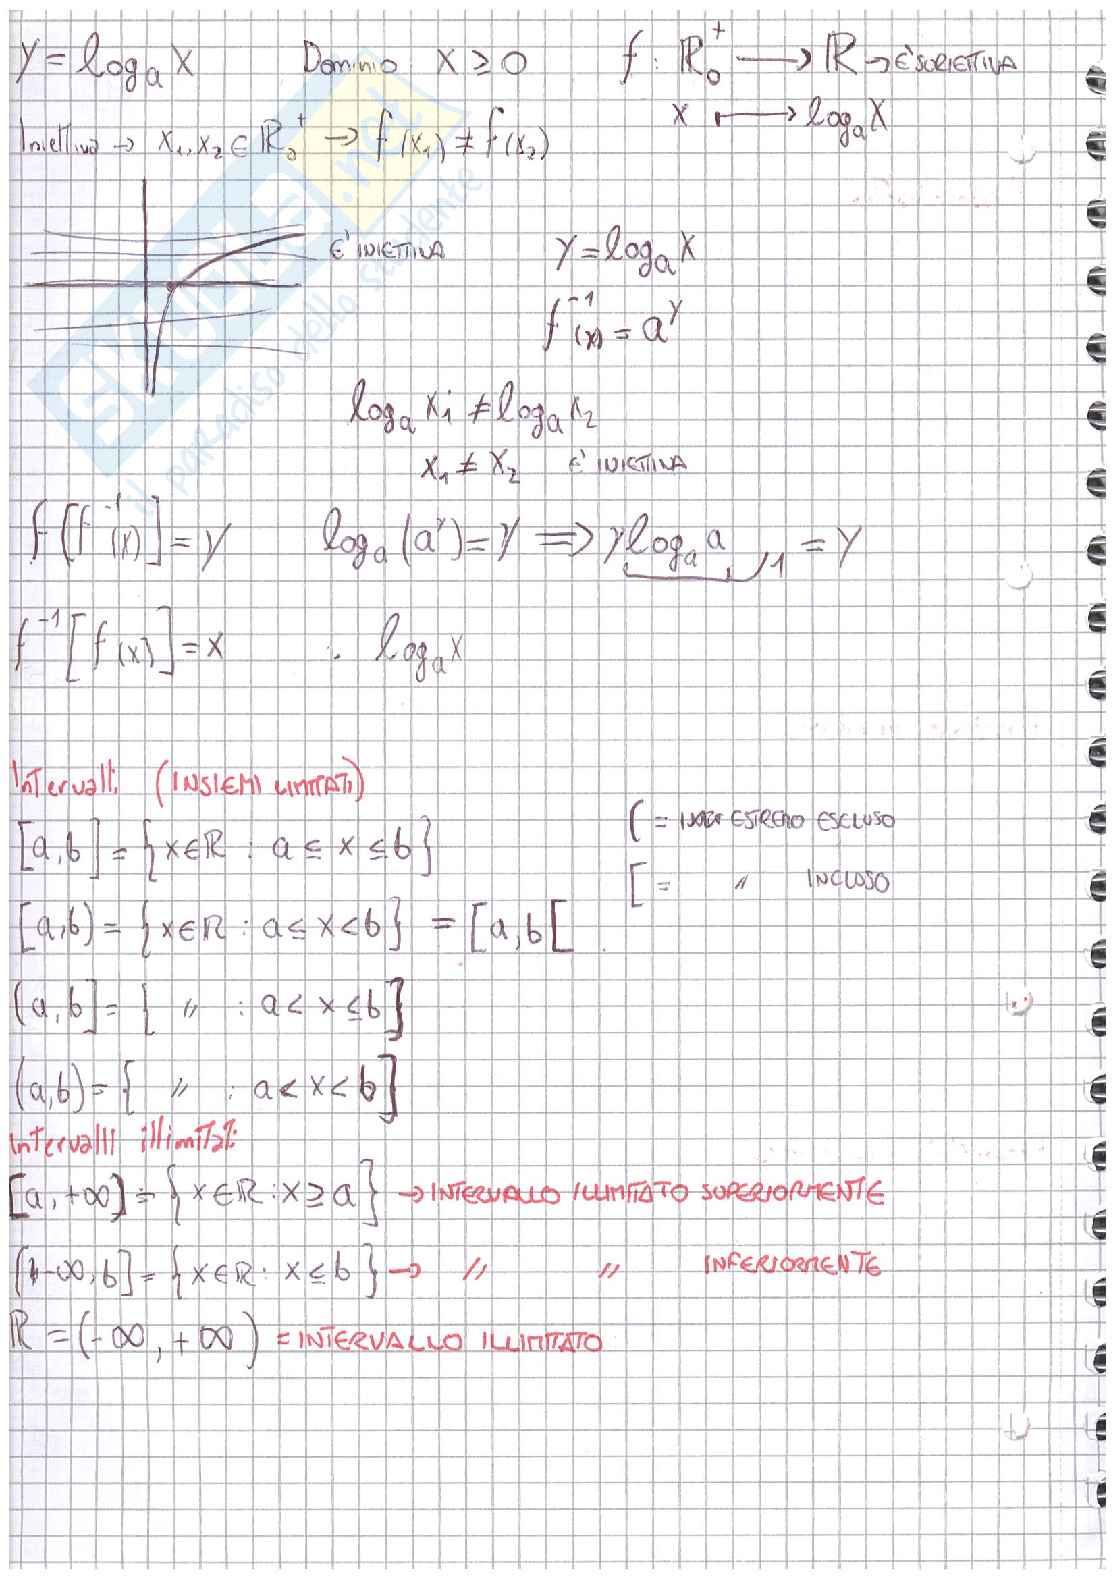 y = logₐ x Dominio x ≥ 0 f : ℝ₀⁺ → ℝ → È SURIETTIVA
x ↦ logₐ x
Iniettiva → x₁, x₂ ∈ ℝ₀⁺ → f(x₁) ≠ f(x₂)
È INIETTIVA
y = logₐ x
f⁻¹(x) = aʸ
logₐ x₁ ≠ logₐ x₂
x₁ ≠ x₂ È INIETTIVA
f[f⁻¹(x)] = y logₐ(aʸ) = y ⇒ y logₐ a 1 = y
f⁻¹[f(x)] = x . logₐ x
Intervalli (INSIEMI LIMITATI)
[a,b] = {x ∈ ℝ : a ≤ x ≤ b}
( = ESTREMO ESCLUSO
[ = " INCLUSO
[a,b) = {x ∈ ℝ : a ≤ x < b} = [a,b[
(a,b] = { " : a < x ≤ b]
(a,b) = { " : a < x < b]
Intervalli illimitati
[a,+∞] = {x ∈ ℝ : x ≥ a} → INTERVALLO ILLIMITATO SUPERIORMENTE
(-∞,b] = {x ∈ ℝ : x ≤ b} → " " INFERIORMENTE
ℝ = (-∞, +∞) = INTERVALLO ILLIMITATO
SKUOLA.net
il paradiso dello studente